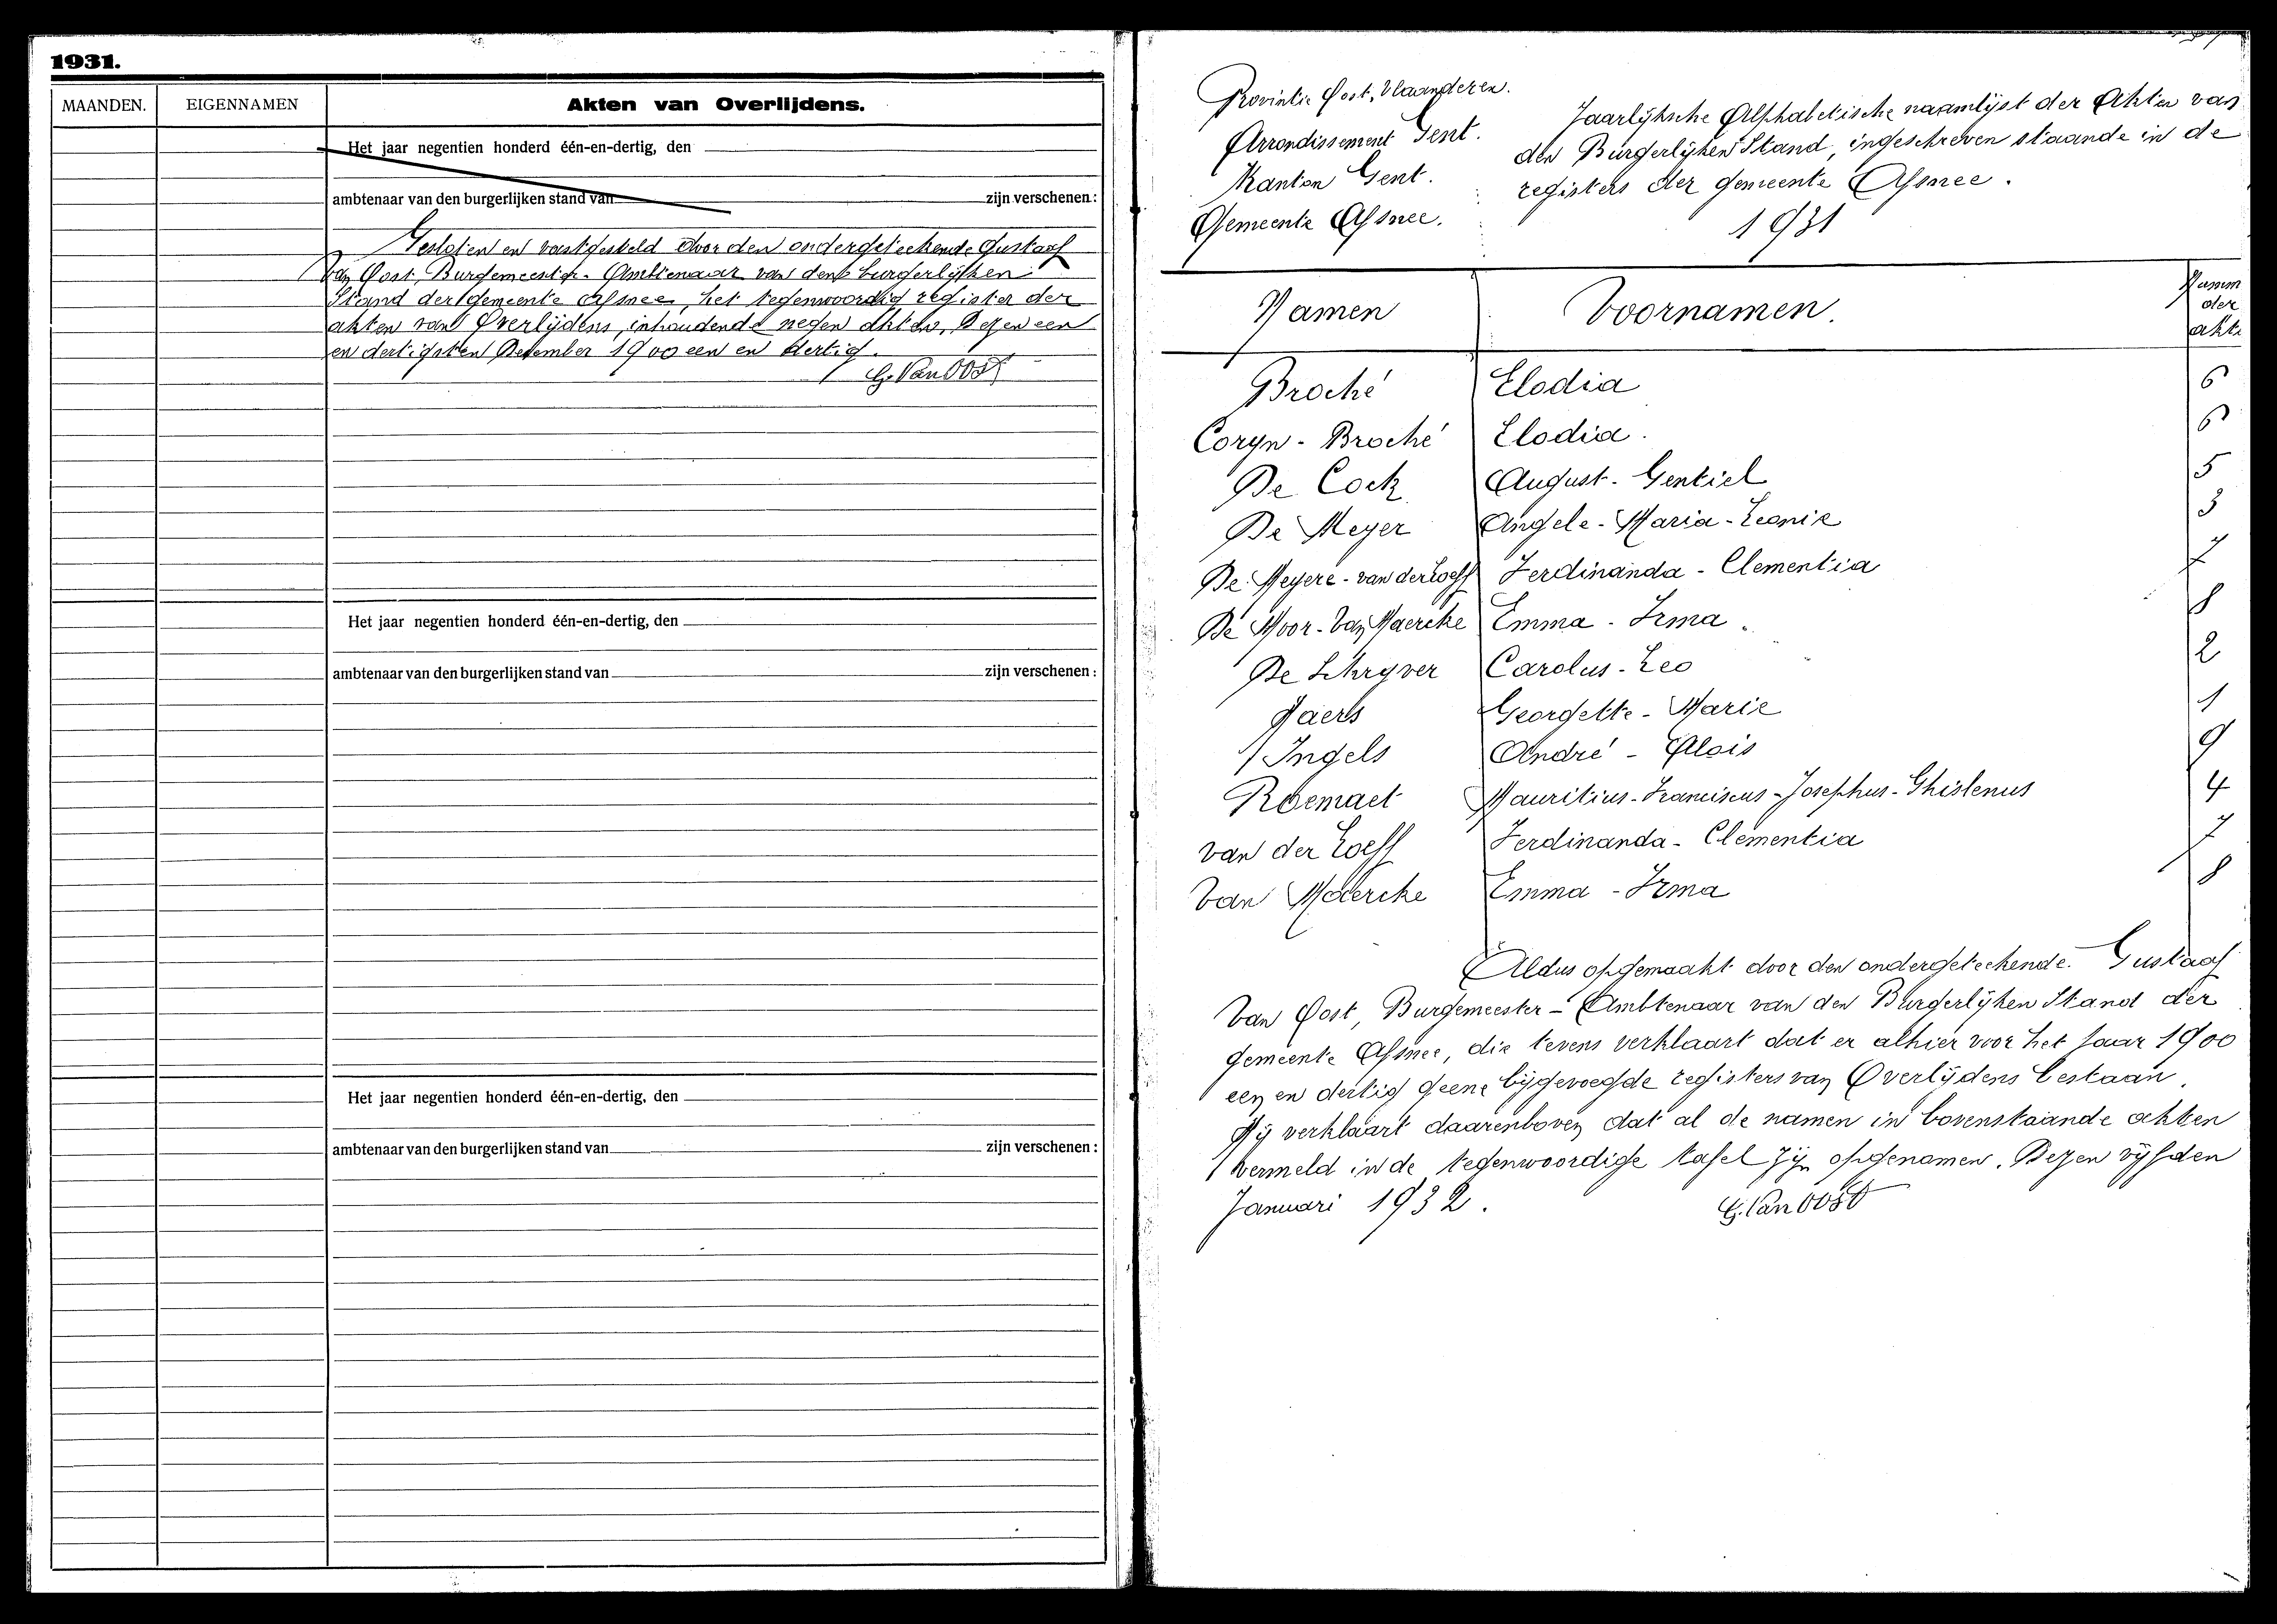 1931.
MAANDEN. EIGENNAMEN Akten van Overlijdens.
Het jaar negentien honderd één-en-dertig, den
ambtenaar van den burgerlijken stand van zijn verschenen:
Gesloten en vastgesteld door den ondergeteekende Gustaaf
Van Oost, Burgemeester-Ambtenaar van den burgerlijken
Stand der gemeente Afsnee, het tegenwoordig register der
akten van Overlijdens, inhoudende negen akten, dezen een
en dertigsten December 1900 een en dertig.
G. Van Oost
Het jaar negentien honderd één-en-dertig, den
ambtenaar van den burgerlijken stand van zijn verschenen:
Het jaar negentien honderd één-en-dertig, den
ambtenaar van den burgerlijken stand van zijn verschenen:
Provintie Oost-Vlaanderen.
Arrondissement Gent.
Kanton Gent.
Gemeente Afsnee.
Jaarlijksche Alphabetische naamlijst der Akten van
den Burgerlijken Stand, ingeschreven staande in de
registers der gemeente Afsnee.
1931
Namen Voornamen. Numm der akte
Broché Elodia 6
Coryn-Broché Elodia. 6
De Cock August-Gentiel 5
De Meyer Angele-Maria-Leonie 3
De Meyere-van der Loeff Ferdinanda-Clementia 7
De Moor-Van Maercke Emma-Irma 8
De Schryver Carolus-Leo 2
Jaers Georgette-Marie 1
Ingels André-Alois 9
Roemaet Mauritius-Franciscus-Josephus-Ghislenus 4
van der Loeff Ferdinanda-Clementia 7
Van Maercke Emma-Irma 8
Aldus opgemaakt door den ondergeteekende Gustaaf
Van Oost, Burgemeester-Ambtenaar van den Burgerlijken Stand der
gemeente Afsnee, die tevens verklaart dat er alhier voor het jaar 1900
een en dertig geene bijgevoegde registers van Overlijdens bestaan.
Hij verklaart daarenboven dat al de namen in bovenstaande akten
vermeld in de tegenwoordige tafel zijn opgenomen. Dezen vijfden
Januari 1932. G. Van Oost